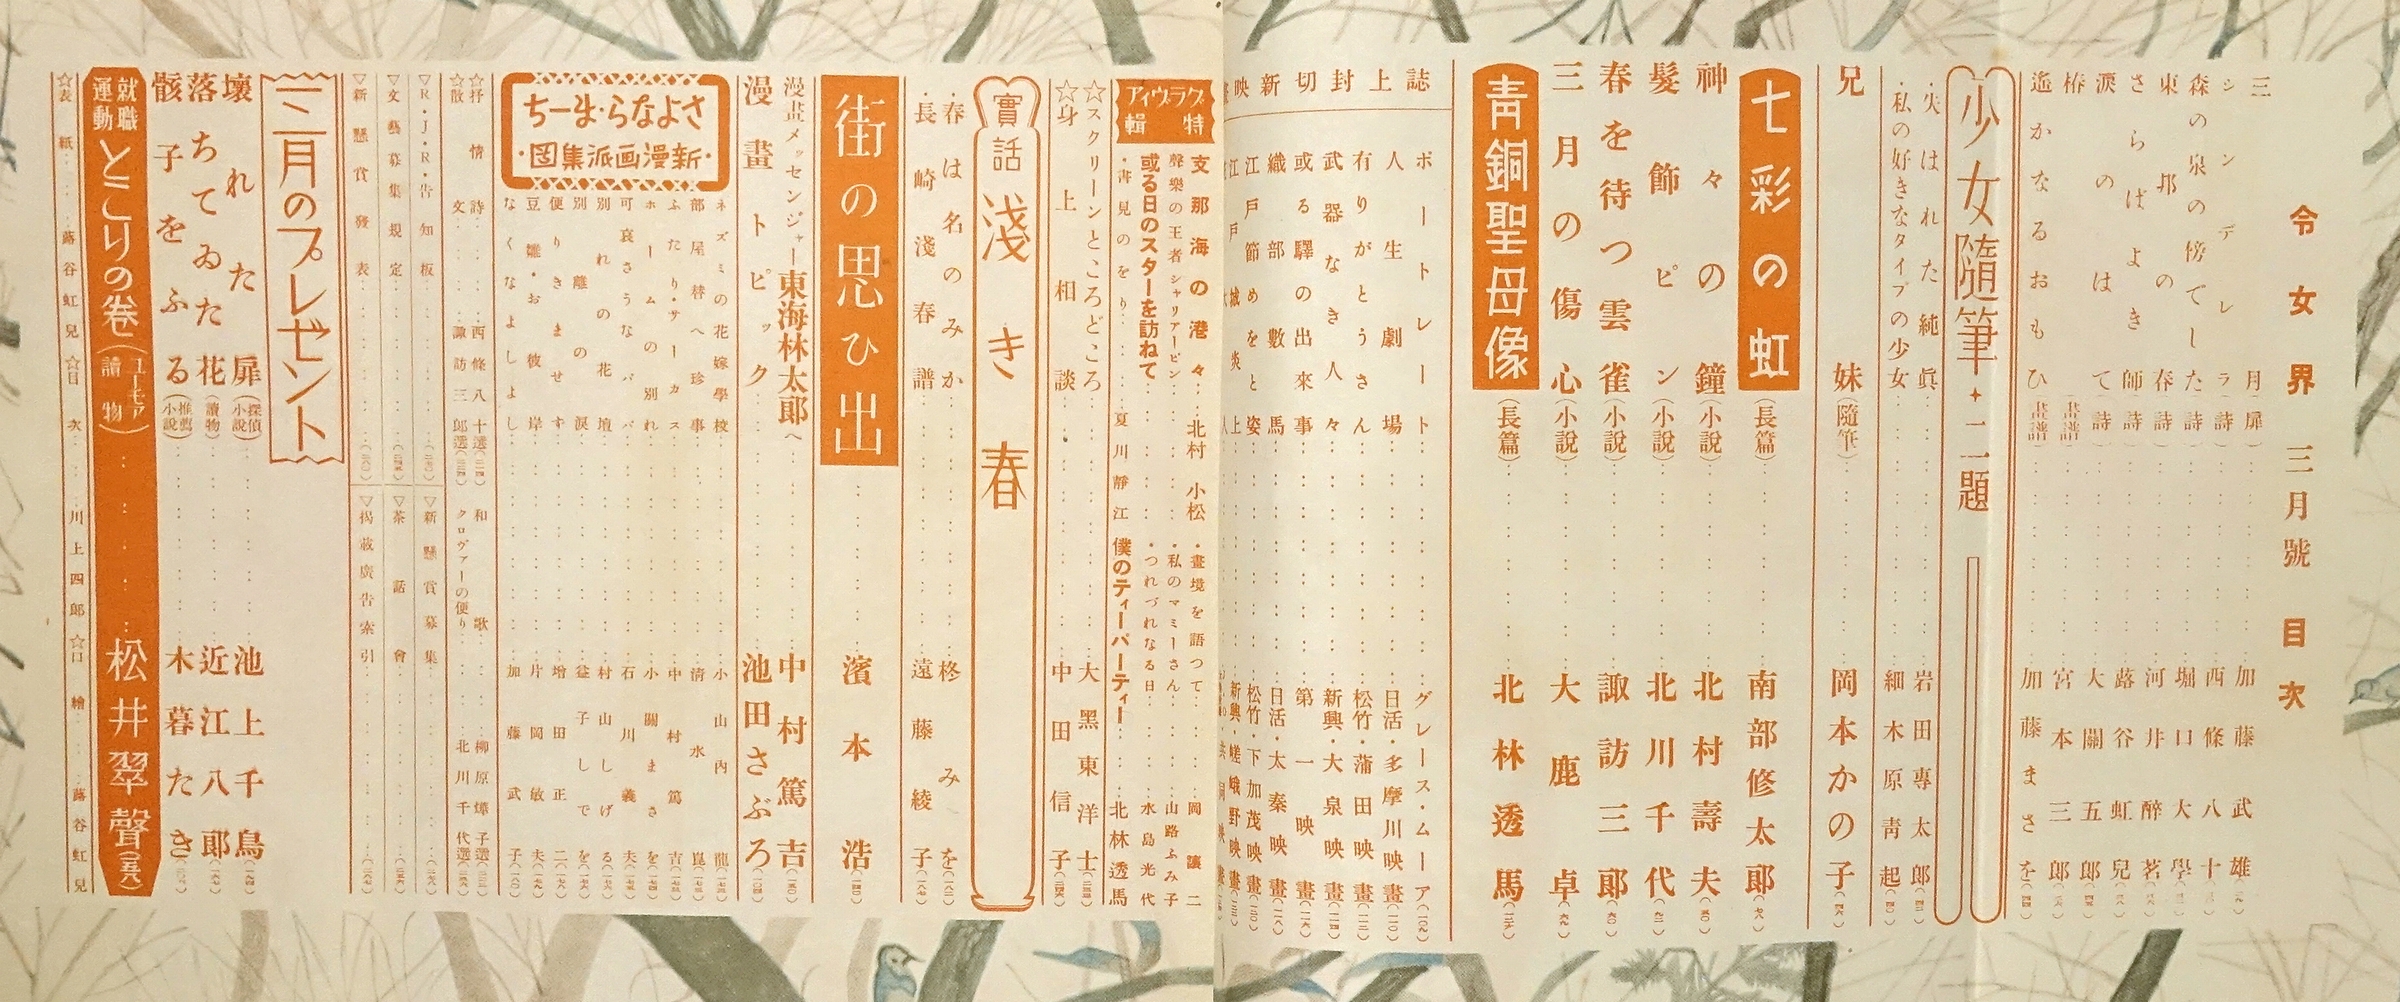 令女界 三月號 目次
三月(扉)……加藤武雄
シンデレラ(詩)……西條八十
森の泉の傍でした(詩)……堀口大學
東邦の春(詩)……河井醉茗
さらばよき師(詩)……蕗谷虹兒
涙のはて(詩)……大關五郎
椿(畫譜)……宮本三郎
遙かなるおもひ(畫譜)……加藤まさを
少女隨筆・二題
・失はれた純眞……岩田專太郎
・私の好きなタイプの少女……細木原靑起
兄妹(隨筆)……岡本かの子
七彩の虹(長篇)……南部修太郎
神々の鐘(小說)……北村壽夫
髮飾ピン(小說)……北川千代
春を待つ雲雀(小說)……諏訪三郎
三月の傷心(小說)……大鹿卓
靑銅聖母像(長篇)……北林透馬
誌上封切新映畫
ポートレート……グレース・ムーア
人生劇場……日活・多摩川映畫
有りがとうさん……松竹・蒲田映畫
武器なき人々……新興・大泉映畫
或る驛の出來事……第一映畫
織部數馬……日活・太秦映畫
江戶節めをと姿……松竹・下加茂映畫
江戶城炎上……新興・嵯峨野映畫
グラヴィア特輯
支那海の港々……北村小松
聲樂の王者シャリアーピン
或る日のスターを訪ねて
・書見のをり……夏川靜江
・畫境を語つて……岡讓二
・私のマミーさん……山路ふみ子
・つれづれなる日……水島光代
僕のティーパーティー……北林透馬
☆スクリーンところどころ……大黑東洋士
☆身上相談……中田信子
實話 淺き春
・春は名のみか……柊みを
・長崎淺春譜……遠藤綾子
街の思ひ出……濱本浩
漫畫メッセンジャー東海林太郎へ……中村篤吉
漫畫トピック……池田さぶろ
さよなら・まーち
・新漫画派集団・
ネズミの花嫁學校……小山內龍
部屋替へ珍事……淸水崑
ふたり・サーカス……中村篤吉
ホームの別れ……小關まさを
可哀さうなパパ……石川義夫
別れの花壇……村山しげる
別離の淚……益子しでを
便りきませす……增田正二
豆雛・お彼岸……片岡敏夫
なくなよしよし……加藤武子
☆抒情詩……西條八十選
☆散文……諏訪三郎選
和歌……柳原燁子選
クロヴァーの便り……北川千代選
▽R・J・R・告知板
▽新懸賞募集
▽文藝募集規定
▽茶話會
▽新懸賞發表
▽揭載廣告索引
三月のプレゼント
壞れた扉(探偵小說)……池上千鳥
落ちてゐた花(讀物)……近江八郎
骸子をふる(推薦小說)……木暮たき
就職運動とこりの卷(ユーモア讀物)……松井翠聲
☆表紙……蕗谷虹兒☆目次……川上四郎☆口繪……蕗谷虹兒